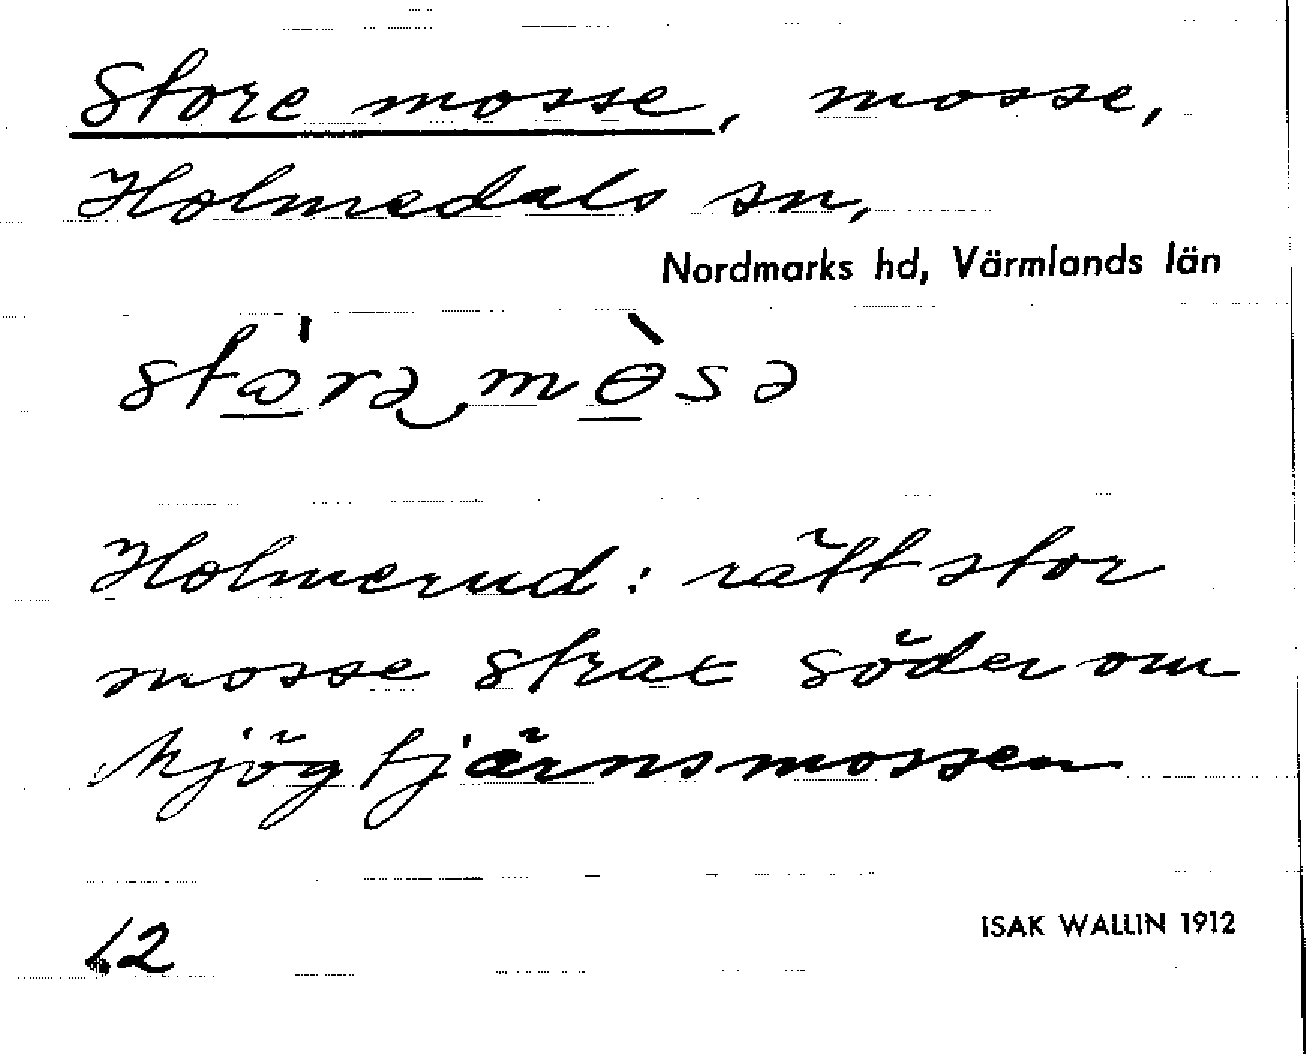 Store mosse, mosse,
Holmedals sn,
Nordmarks hd, Värmlands län
Holmerud: rätt stor
mosse strax söder om
Mjögtjärnsmossen
ISAK WALLIN 1912